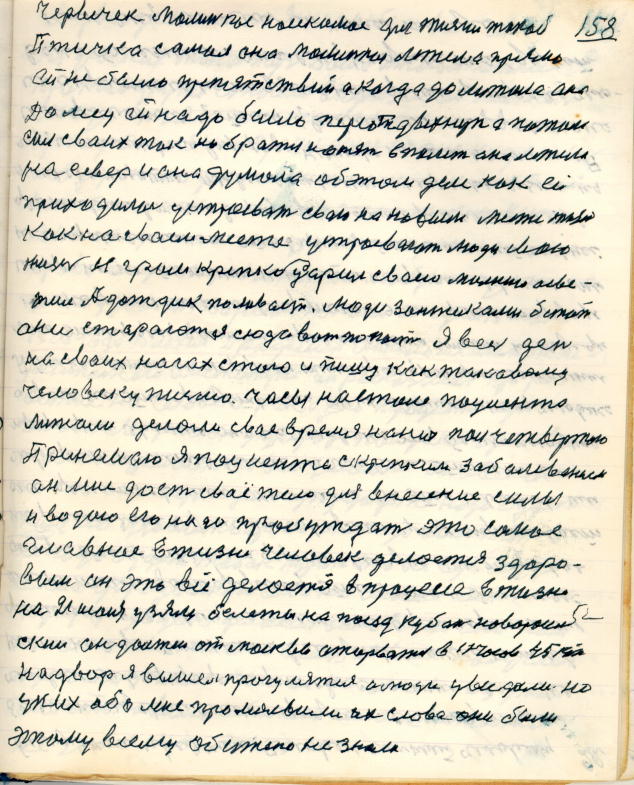 Червячек малинкое насикомое для жизни такой 158
Птичка самая она малинкая летела прямо
ей не было препятствий а когда долитала она
Домей ей надо было передвыхнут а потом
сил своих так набратися хотят в полет она летела
на север и она думала об этом деи как ей
приходилос устроеват свою на новым мести жизн
Как на своем месте устроевают люди свою
жизн И гром крепко ударил своею молнию осве-
тил А дождик поливает. Люди зонтиками бежат
они стараются сюдавот попаст Я вес ден
на своих ногах стою и пишу как таковому
человеку писмо. часы на столе пациента
лижали делали свое время на них пол четвертого
Принемаю я пациента с крепким заболеванием
он мне даст своё тело для внесение силы
и водою его надо пробуждат это самое
главное в жизни человек делается здоро-
вым он это всё делается в процесе в жизни
на 21 июня узяли белеты на поезд кубан новоросий 52
ский он должен от москвы оторватся в 14 часов 45 мин
на двор я вышел прогулятся а люди увидали но
у них обо мне промолвили их слова они были
этому всему обижено не знали